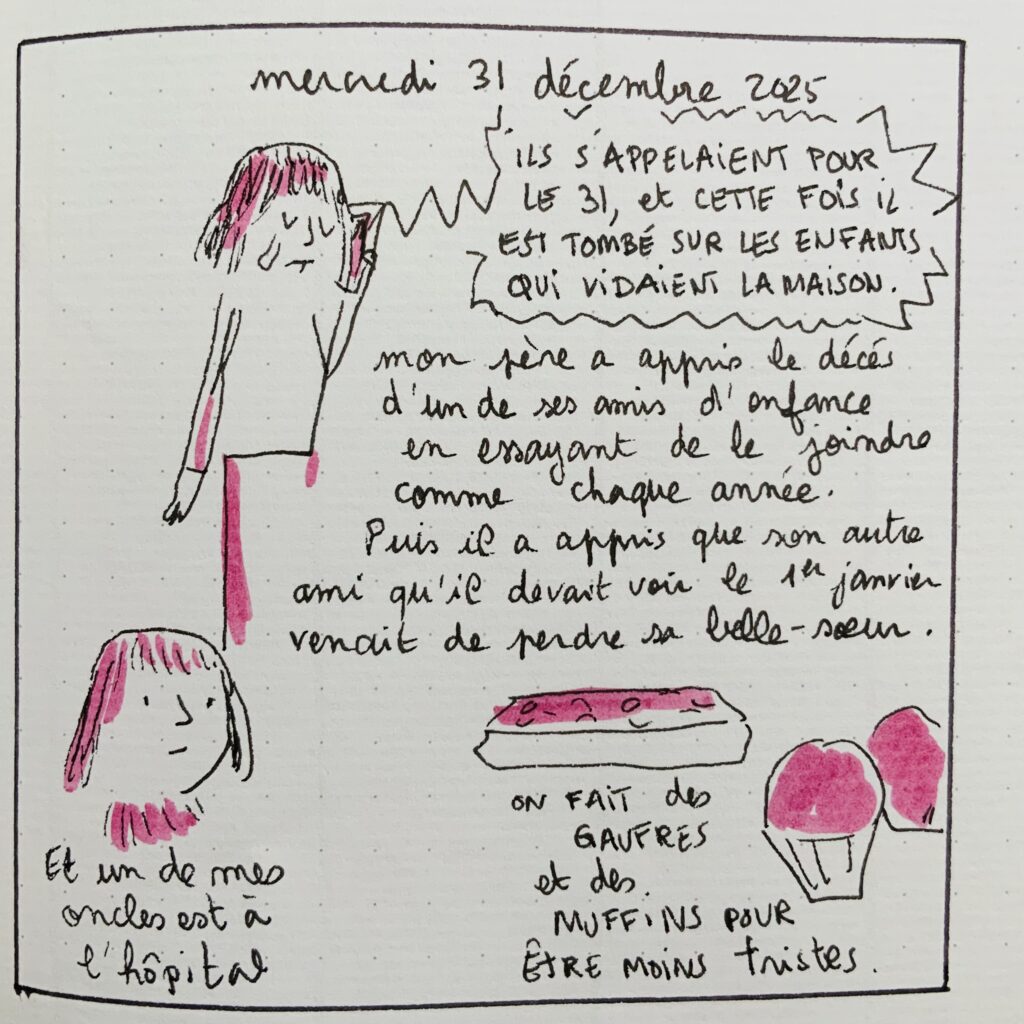 mercredi 31 décembre 2025
ILS S'APPELAIENT POUR
LE 31, et CETTE FOIS IL
EST TOMBÉ SUR LES ENFANTS
QUI VIDAIENT LA MAISON.
mon père a appris le décés
d'un de ses amis d'enfance
en essayant de le joindre
comme chaque année.
Puis il a appris que son autre
ami qu'il devait voir le 1er janvier
venait de perdre sa belle-soeur.
Et un de mes
oncles est à
l'hôpital
ON FAIT des
GAUFRES
et des.
MUFFINS POUR
ÊTRE MOINS tristes.